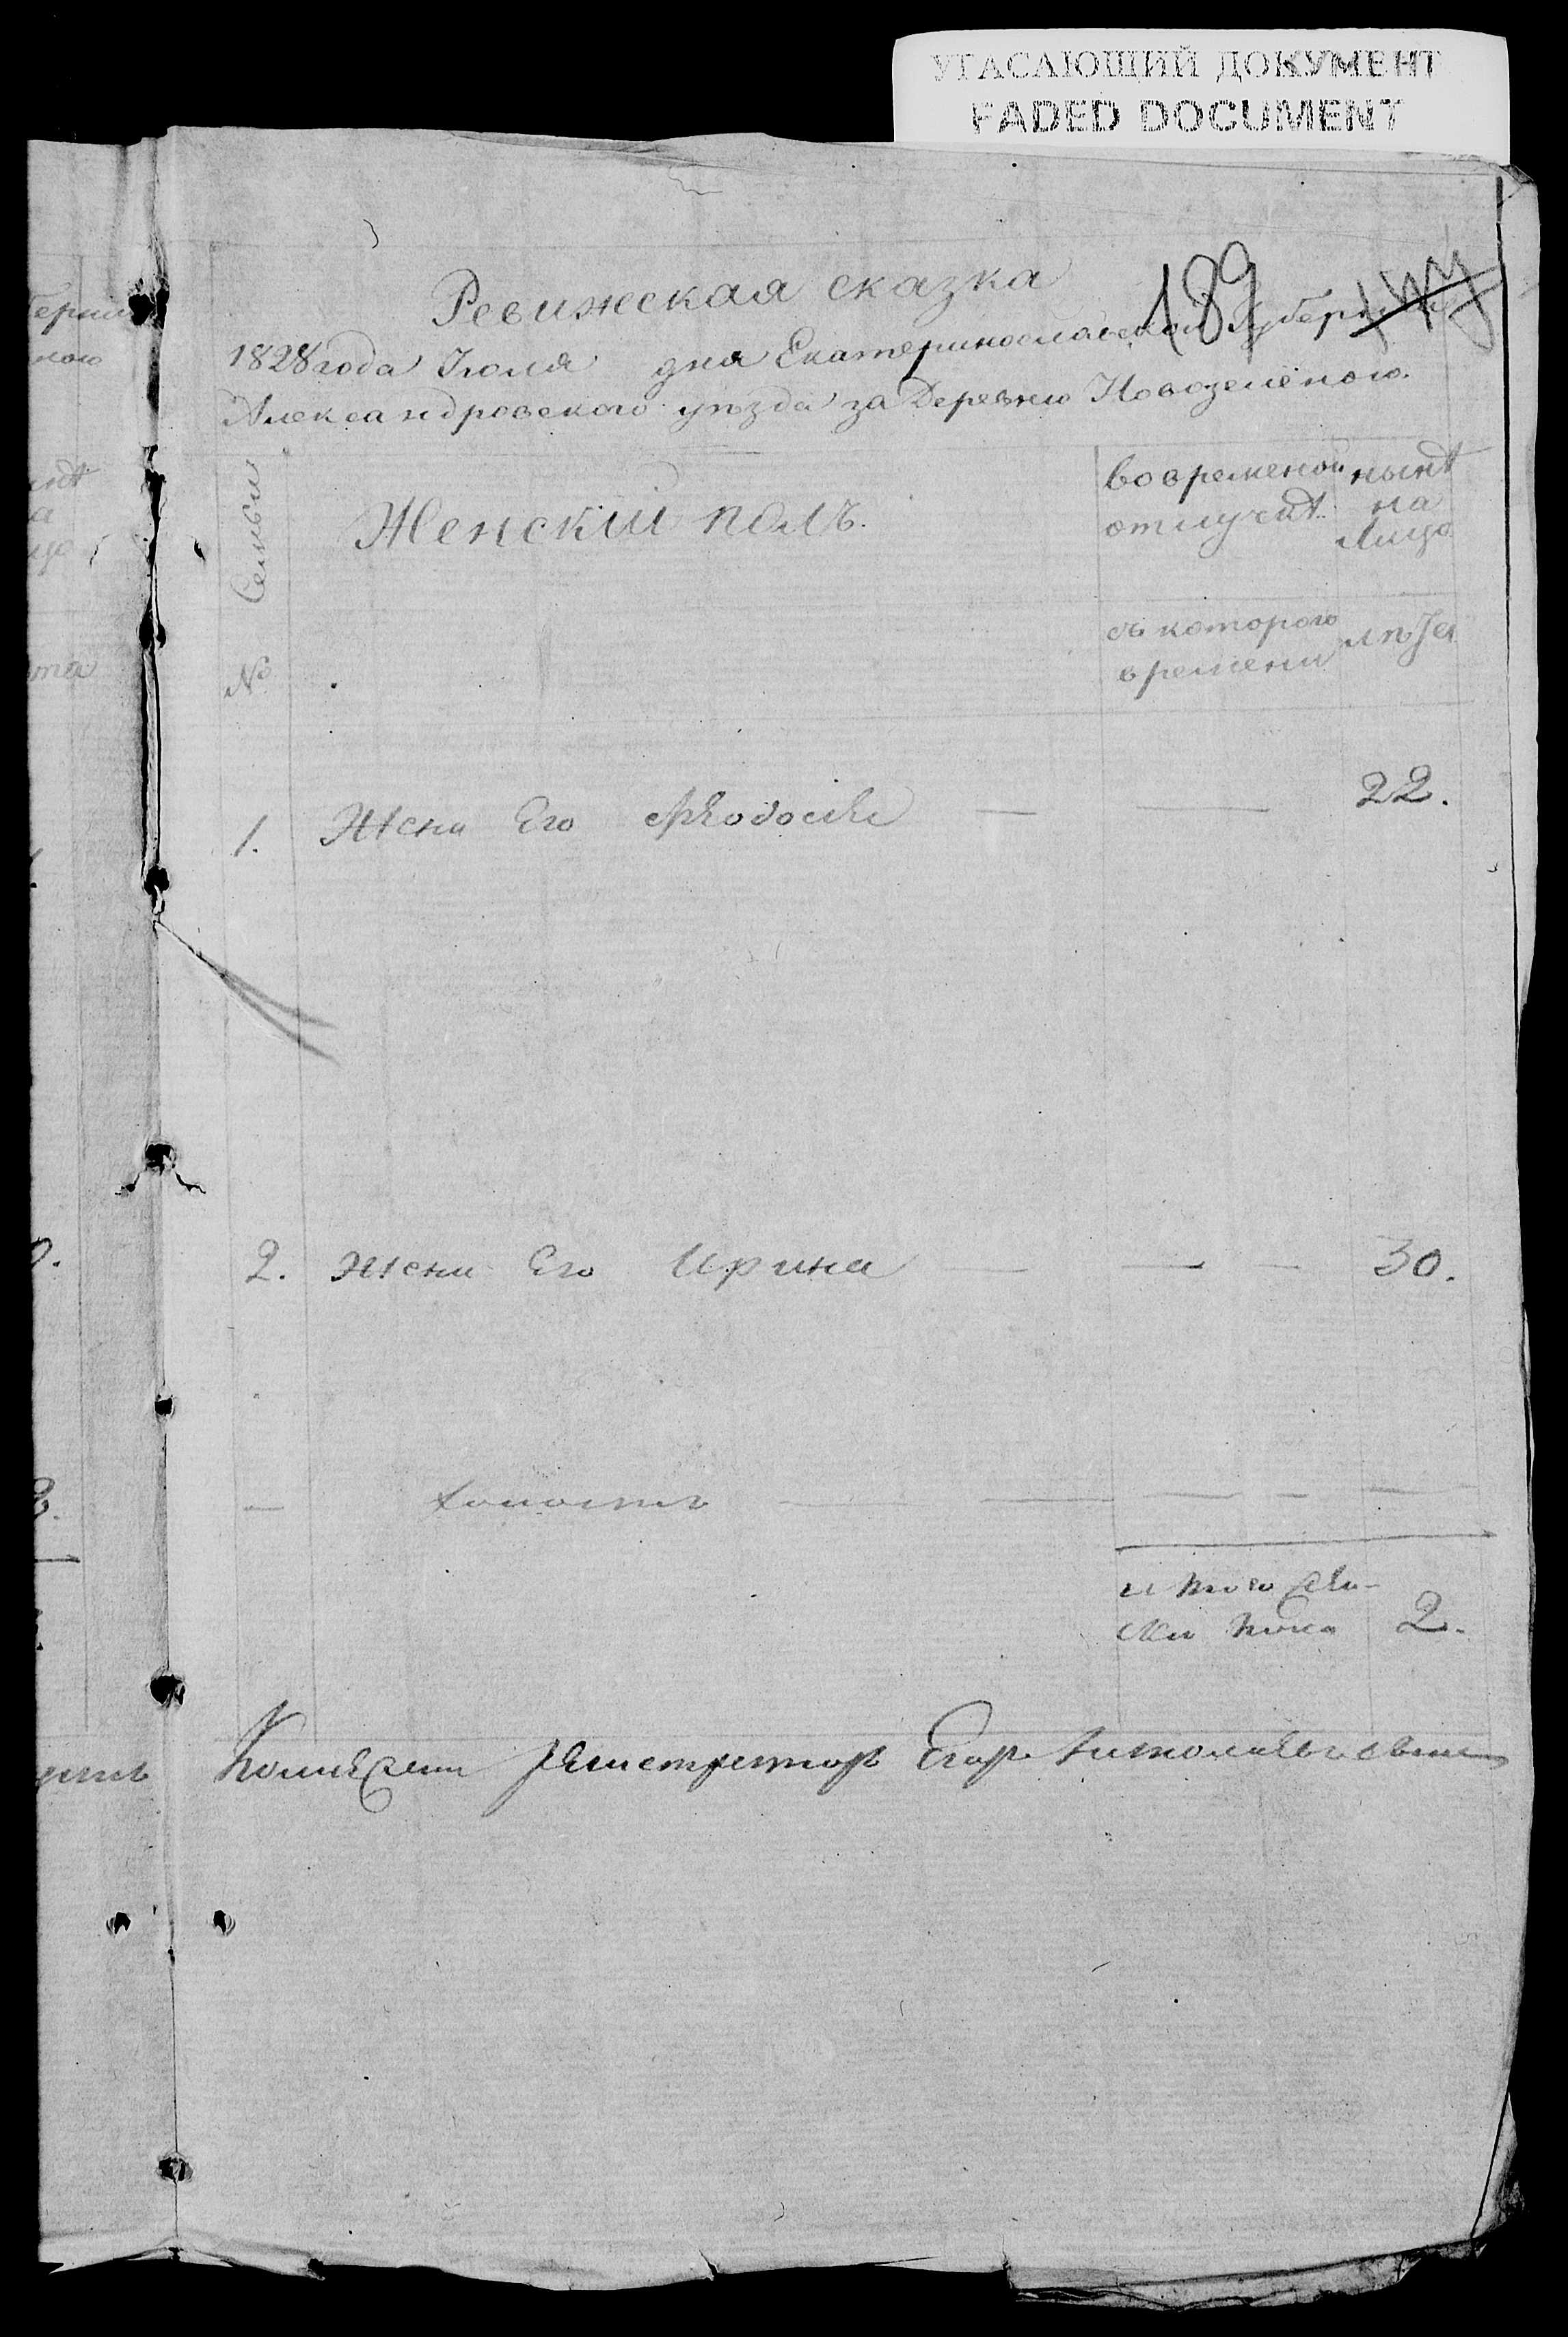 УГАСАЮЩИЙ ДОКУМЕНТ
FADED DOCUMENT
189
Ревижская сказка
1828 года Июля дня Екатеринославской Губернии
Александровского уѣзда за Деревню Новозелёного.
№ Семьи
Женскій полъ.
во временой отлучкѣ
нынѣ на лицо
съ которого времени
лѣта
1. Жена Его Феодосия — — 22.
2. Жена Его Ирина — — — 30.
— холостъ — — — — —
и того жен-
ска пола 2.
Колежский регистраторъ Егоръ